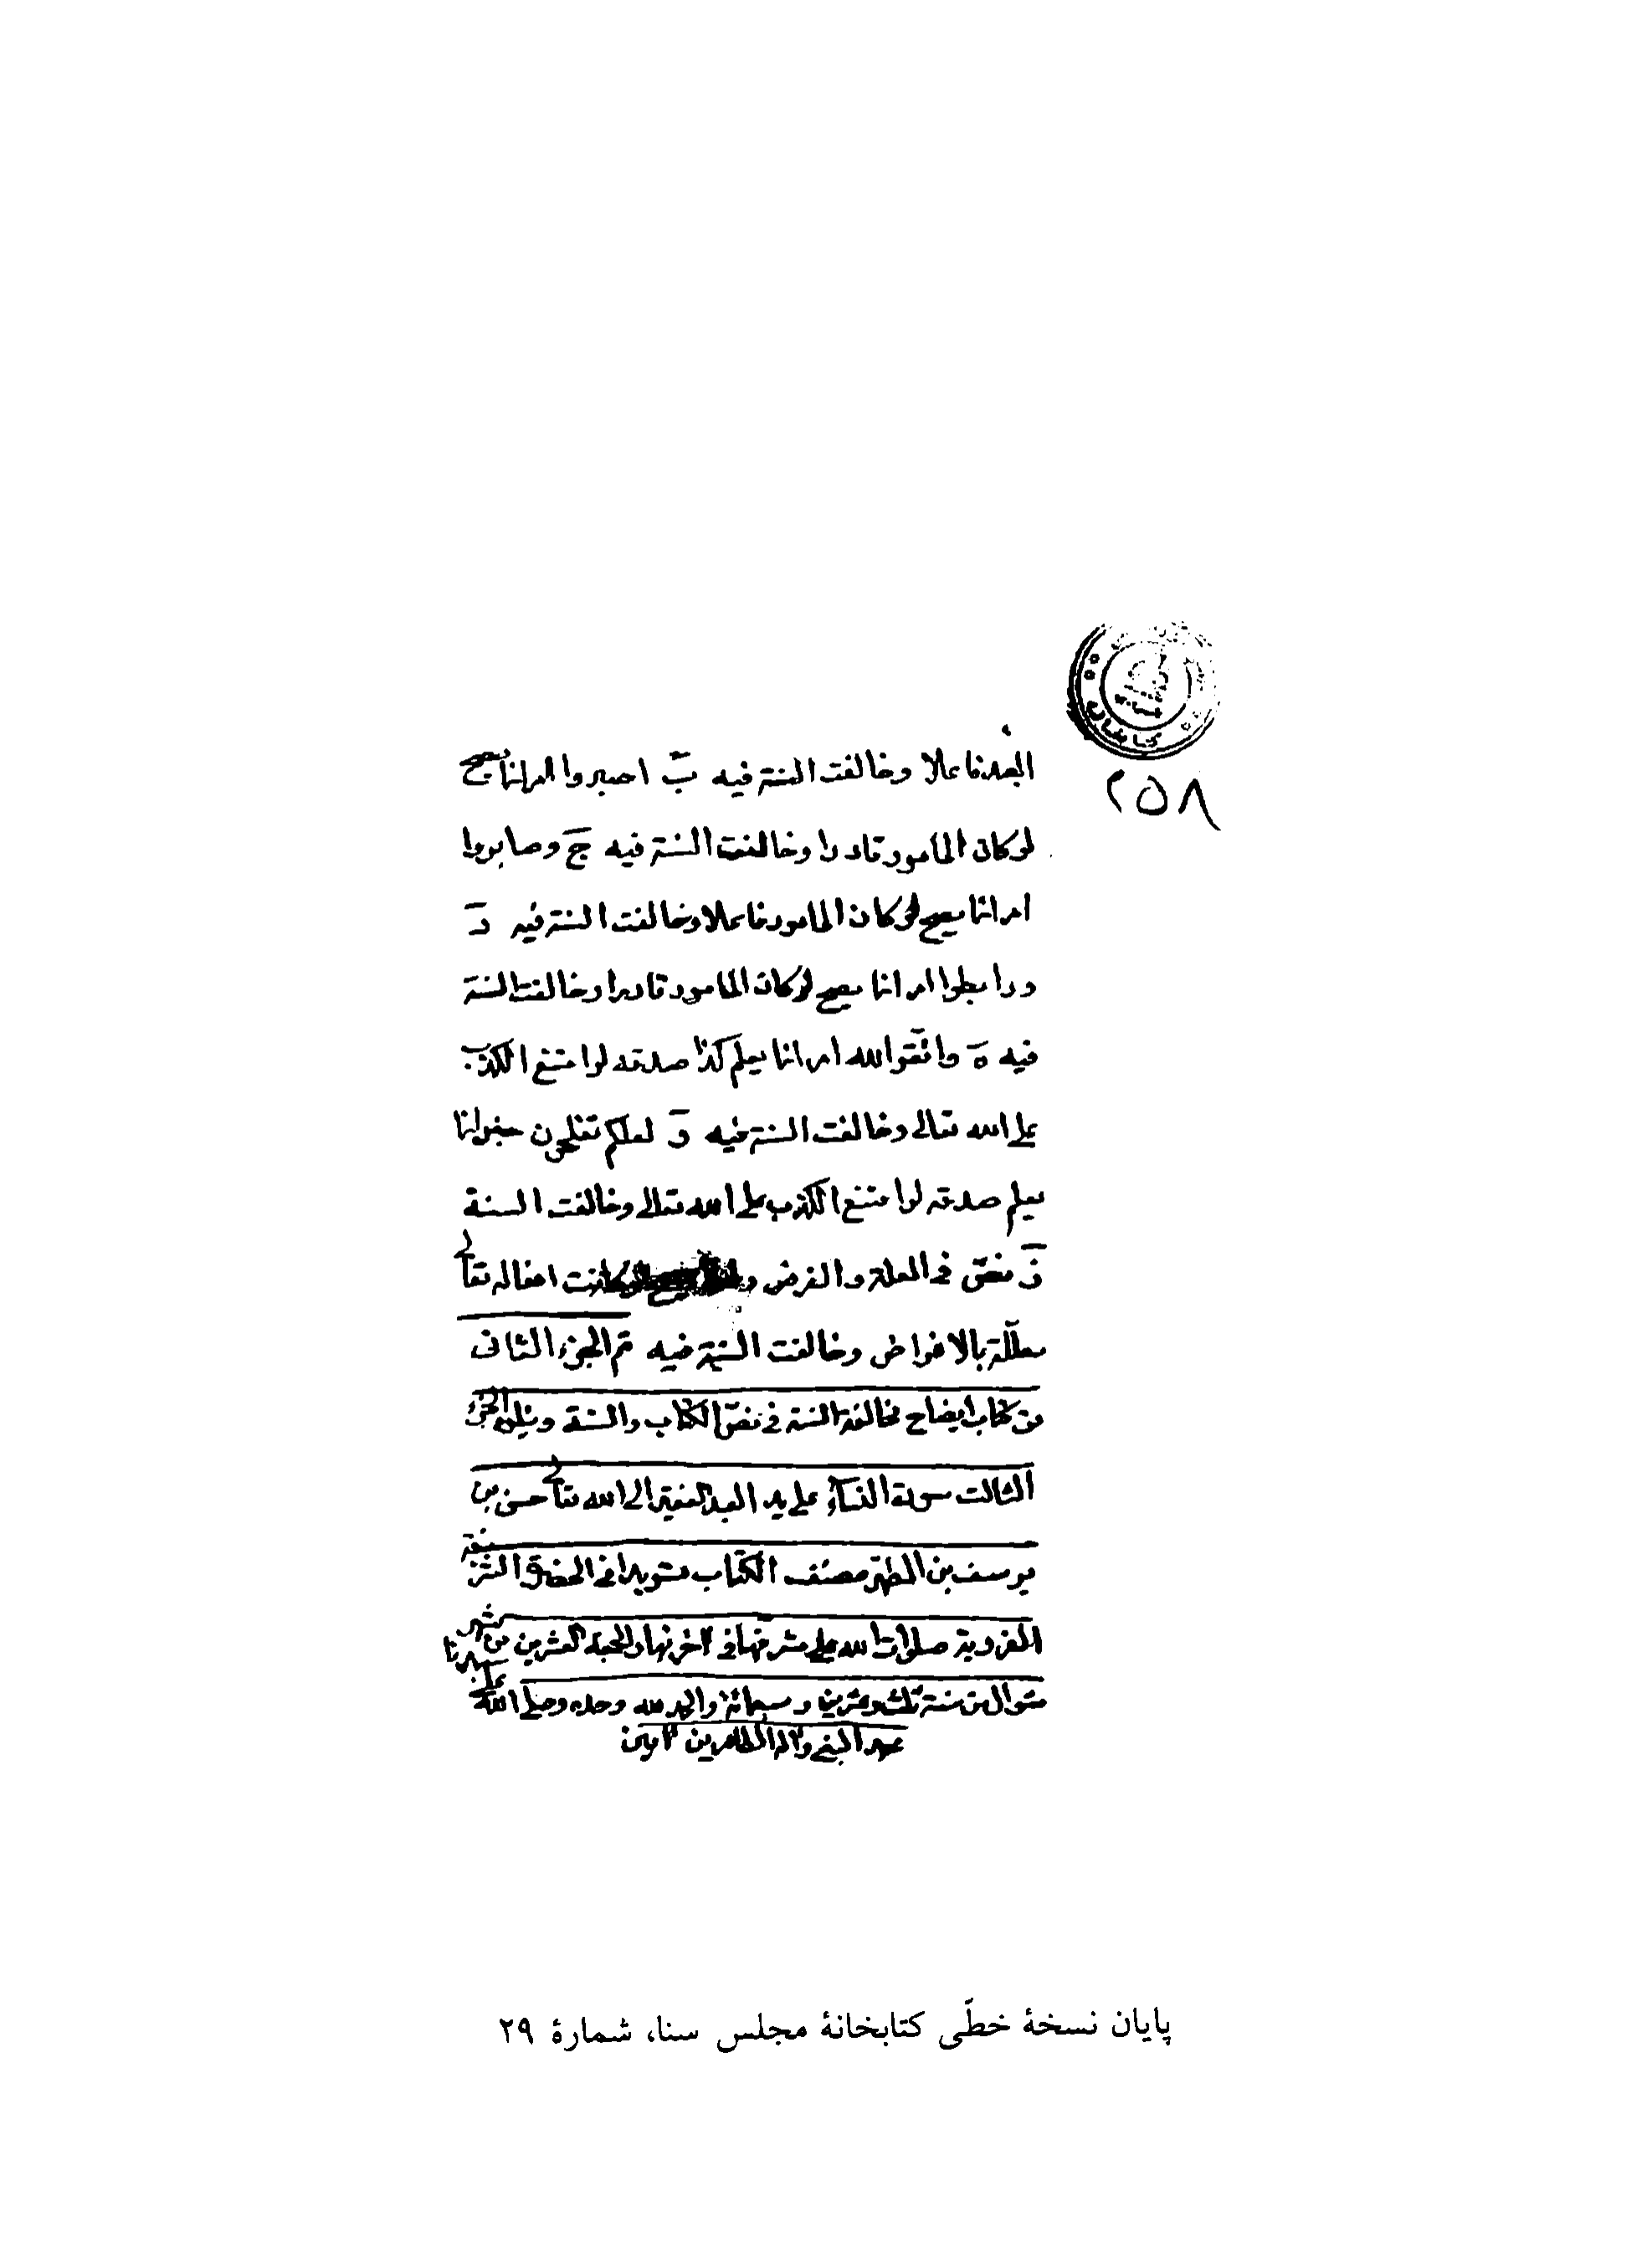 كتابخانه
٢٥٨
العبد فاعلا وخالفت السنة فيه ب اصبروا امر انما يصح
لو كان المامور قادرا وخالفت السنة فيه ج وصابروا
امر انما يصح لو كان المامور فاعلا وخالفت السنة فيه د
ورابطوا امر انما يصح لو كان المامور قادرا وخالفت السنة
فيه ه واتقوا الله امر انما يعلم كذا صدقه لو امتنع الكذب
على الله تعالى وخالفت السنة فيه و لعلكم تفلحون خبر انما
يعلم صدقه لو امتنع الكذب على الله تعالى وخالفت السنة
ز نص في العلة والغرض كانت افعاله تعالى
معللة بالاغراض وخالفت السنة فيه تم الجزء الثانى
من كتاب ايضاح مخالفة السنة فى نص الكتاب والسنة ويتلوه الجزء
الثالث سورة النساء على يد العبد الفقير الى الله تعالى حسن بن
يوسف بن المطهر مصنف الكتاب تسويدا فى الحضرة الشريفة
الغروية صلوات الله على مشرفها فى آخر نهار الجمعة العشرين من شهر
شوال من سنة ثلث وعشرين وسبعمائة والحمد لله وحده وصلى الله على سيدنا
محمد النبي وآله الطاهرين آمين
پایان نسخهٔ خطّی کتابخانهٔ مجلس سنا، شمارهٔ ۲۹